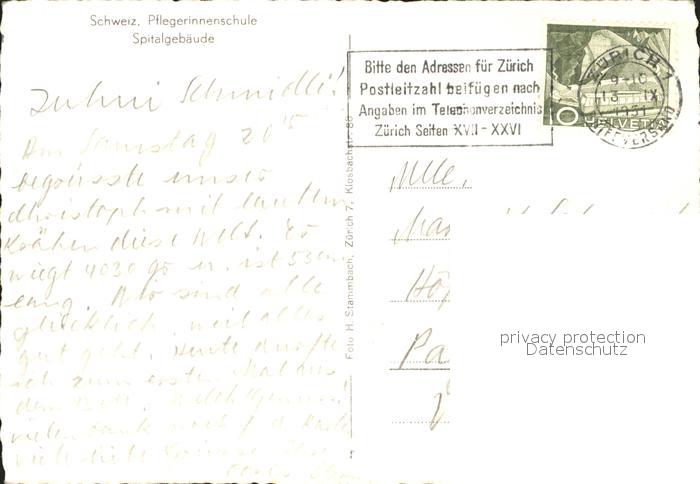 Schweiz. Pflegerinnenschule
Spitalgebäude
Bitte den Adressen für Zürich
Postleitzahl beifügen nach
Angaben im Telephonverzeichnis
Zürich Seiten XVII - XXVI
ZÜRICH 7
9-10
13. IX
1951
BRIEFVERSAND
10 HELVETIA
Schmidli!
Am Samstag 20 15
begrüsste unser
Christoph mit lautem
Krähen diese Welt. Es
wiegt 4030 gr u. ist 53 cm
lang. Wir sind alle
glücklich, weil alles
gut geht. Heute durfte
ich zum ersten Mal aus
dem Bett. Welch Genuss!
vielen Dank noch f. d. Karte
viele liebe Grüsse
Mlle.
Ma
Hô
Pa
Foto H. Stammbach, Zürich 7, Klosbachstr.
privacy protection
Datenschutz